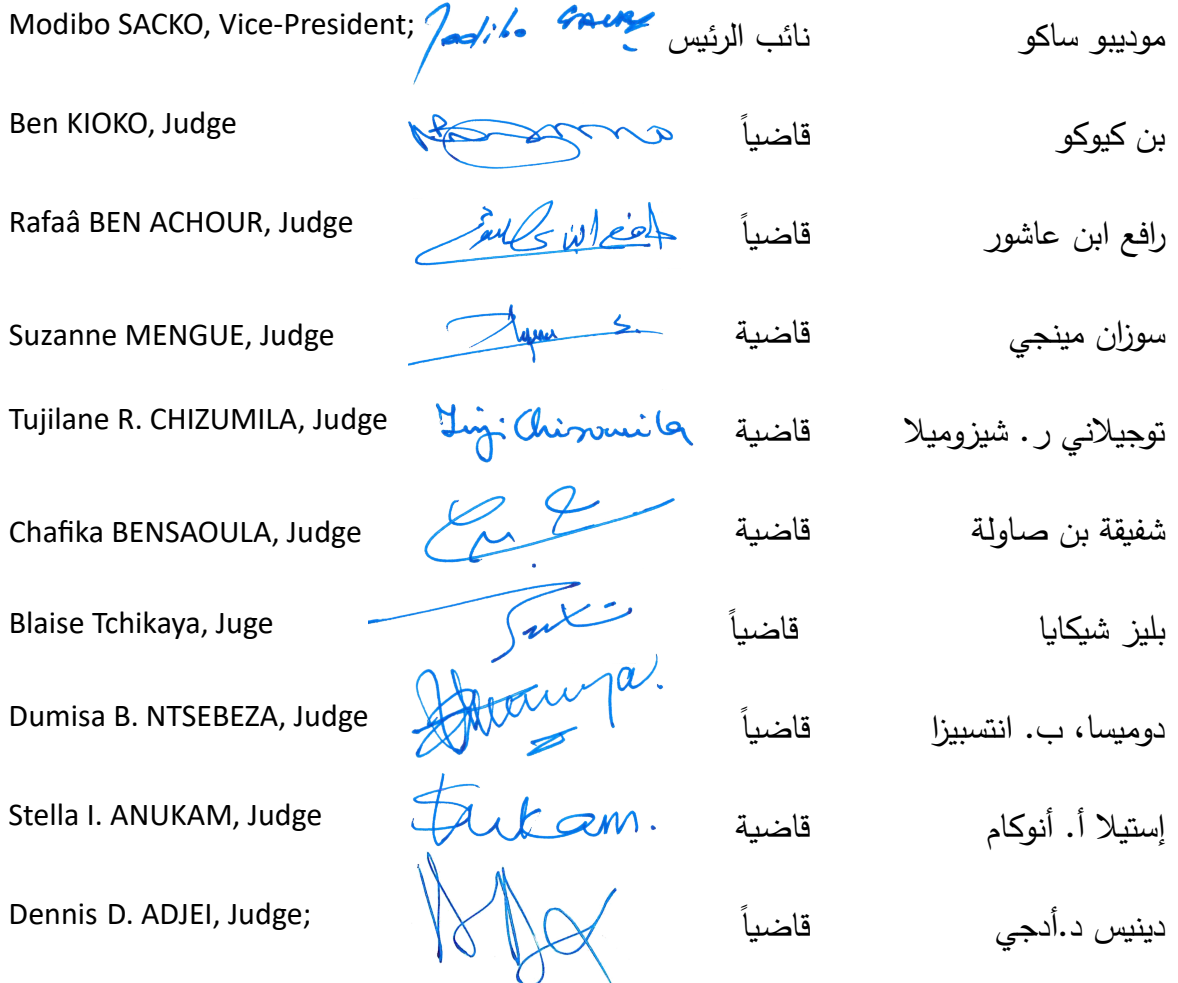 Modibo SACKO, Vice-President; Modibo SACKO نائب الرئيس موديبو ساكو
Ben KIOKO, Judge قاضياً بن كيوكو
Rafaâ BEN ACHOUR, Judge قاضياً رافع ابن عاشور
Suzanne MENGUE, Judge قاضية سوزان مينجي
Tujilane R. CHIZUMILA, Judge Tuji Chizumila قاضية توجيلاني ر. شيزوميلا
Chafika BENSAOULA, Judge قاضية شفيقة بن صاولة
Blaise Tchikaya, Juge قاضياً بليز شيكايا
Dumisa B. NTSEBEZA, Judge قاضياً دوميسا، ب. انتسبيزا
Stella I. ANUKAM, Judge قاضية إستيلا أ. أنوكام
Dennis D. ADJEI, Judge; قاضياً دينيس د.أدجي